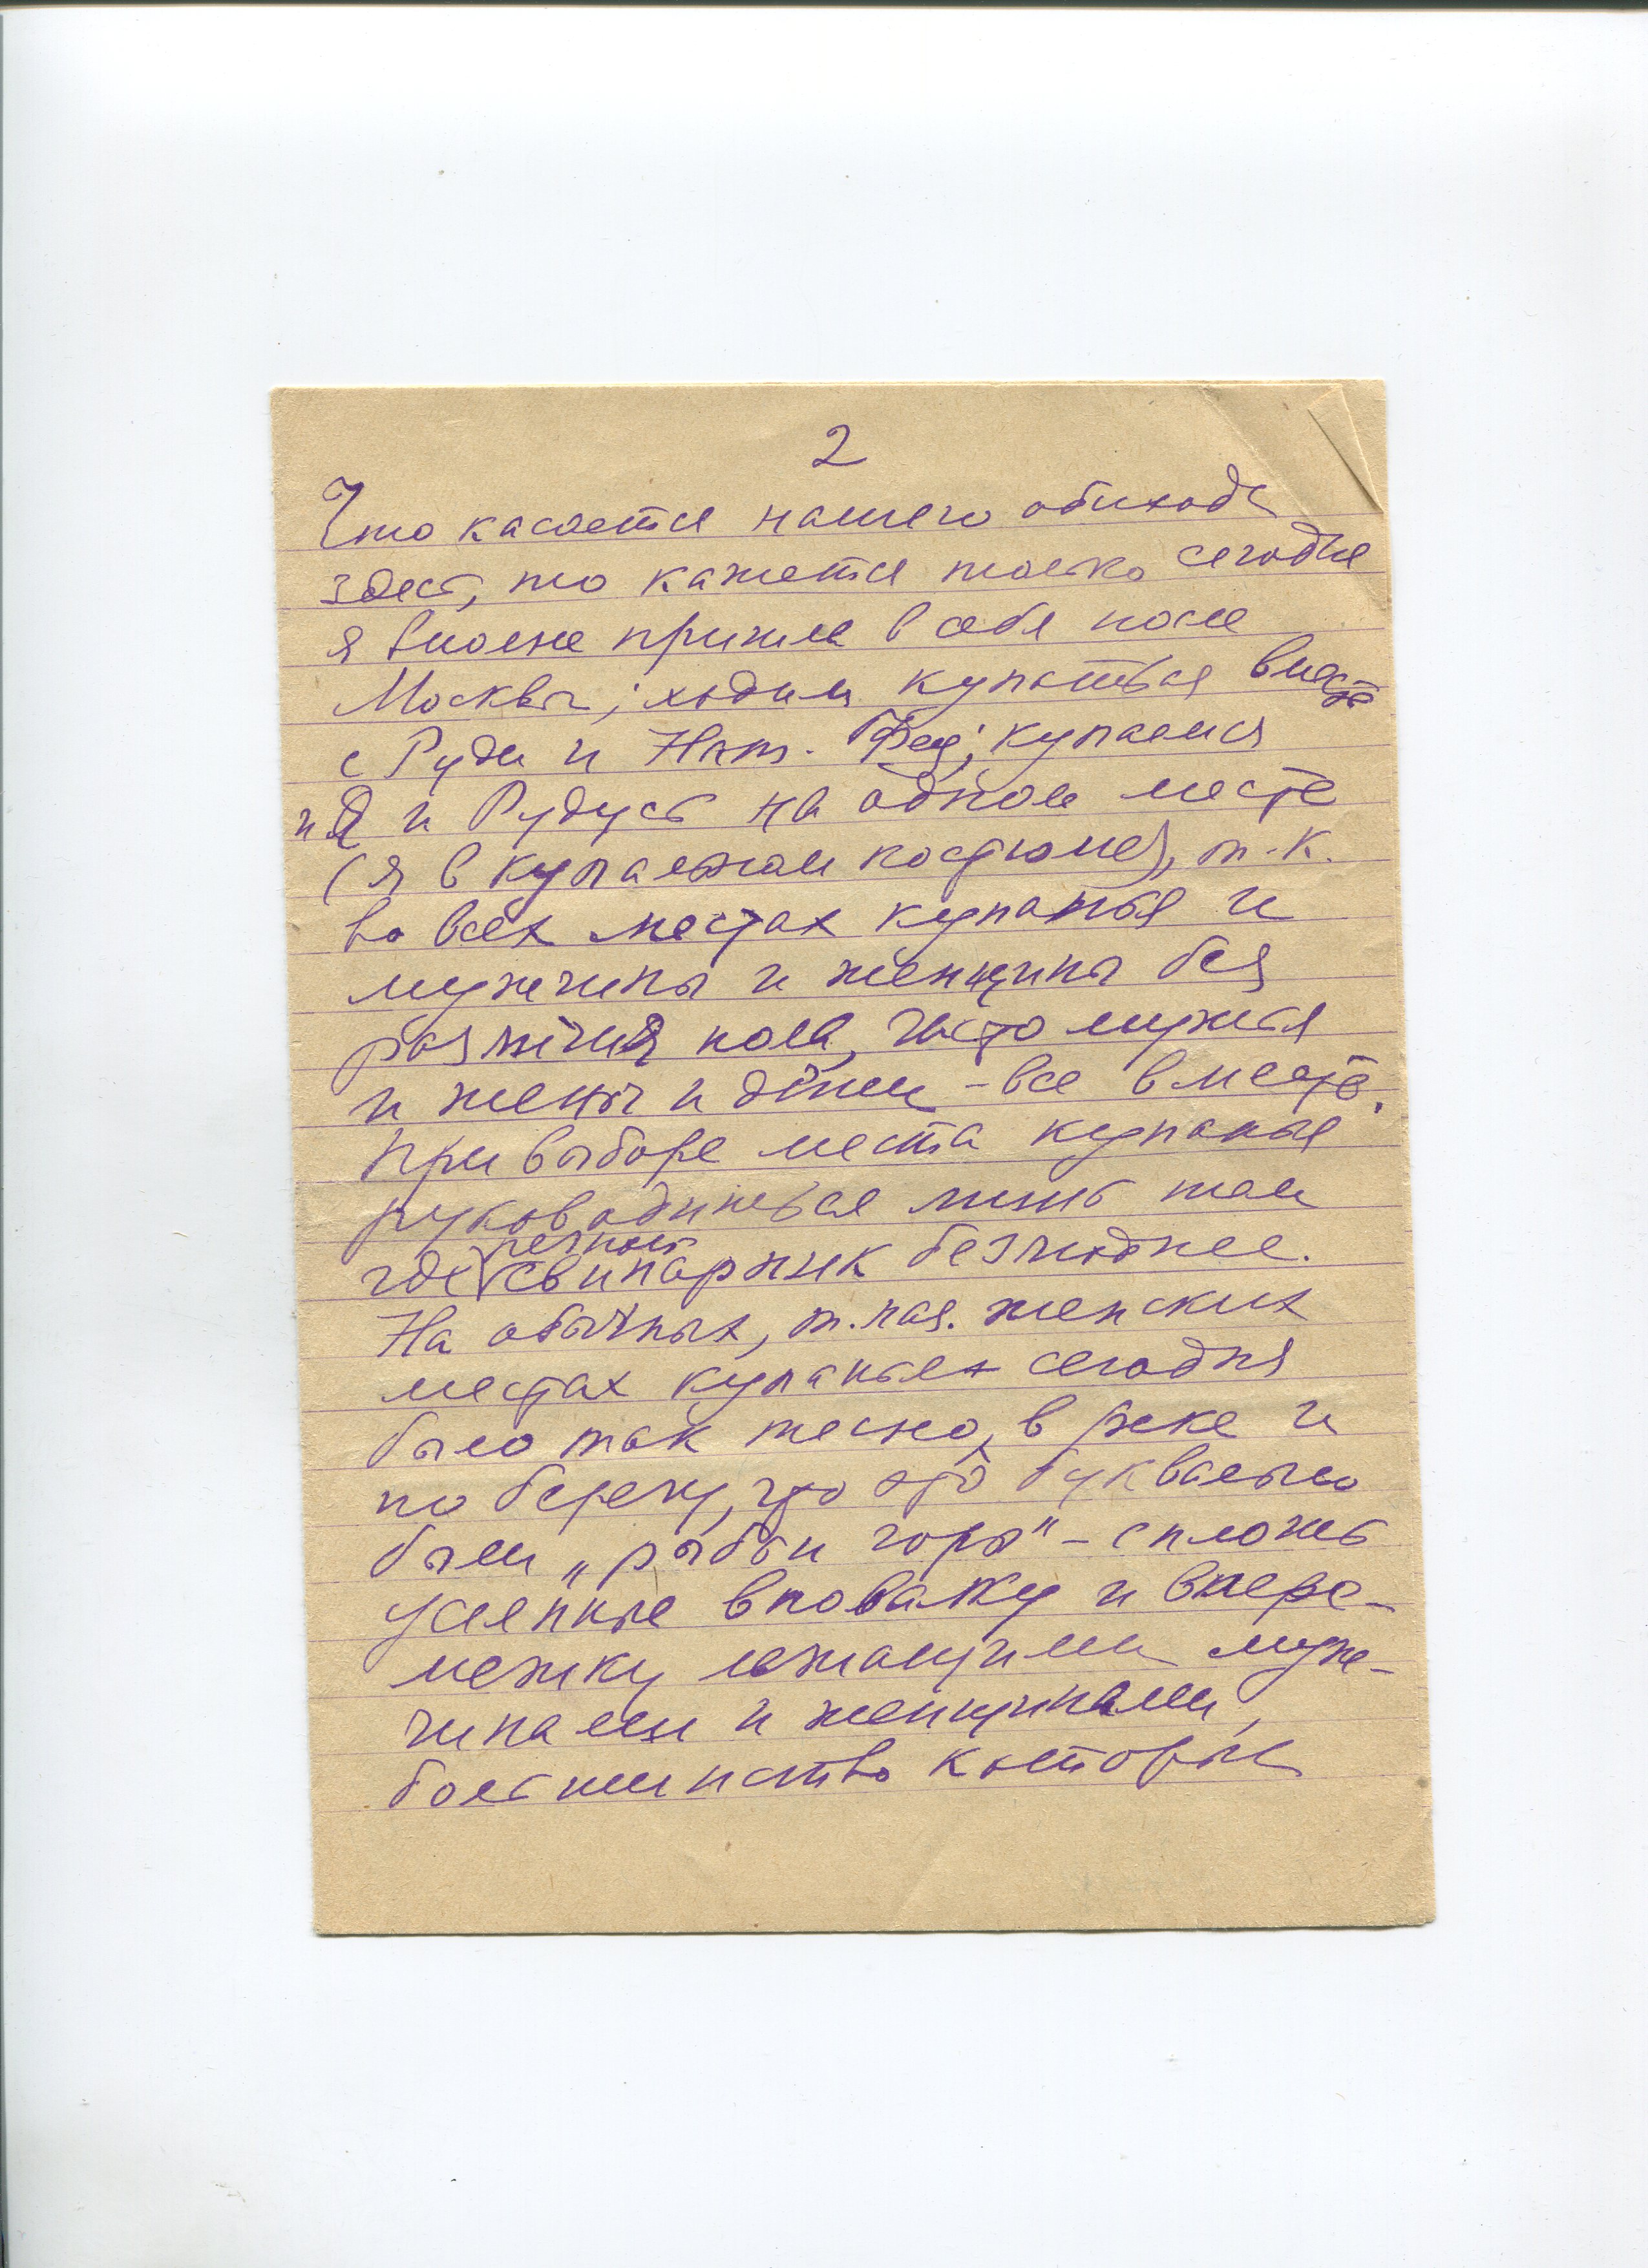 2
Что касается нашего обихода
здесь, то кажется только сегодня
я вполне пришла в себя после
Москвы; ходим купаться вместе
с Руди и Нат. Фед; купаемся
и я и Рудусь на одном месте
(я в купальном костюме), т.к.
во всех местах купанья и
мужчины и женщины без
различия пола, часто мужья
и жены и дети – все вместе.
При выборе места купанья
руководишься лишь тем
где речной свинарник безлюднее.
На обычных, т.наз. женских
местах купанья сегодня
было так тесно, в реке и
по берегу, что это буквально
были „рыбьи горы" – сплошь
усеянные вповалку и впере-
межку лежащими муж-
чинами и женщинами,
большинство которых